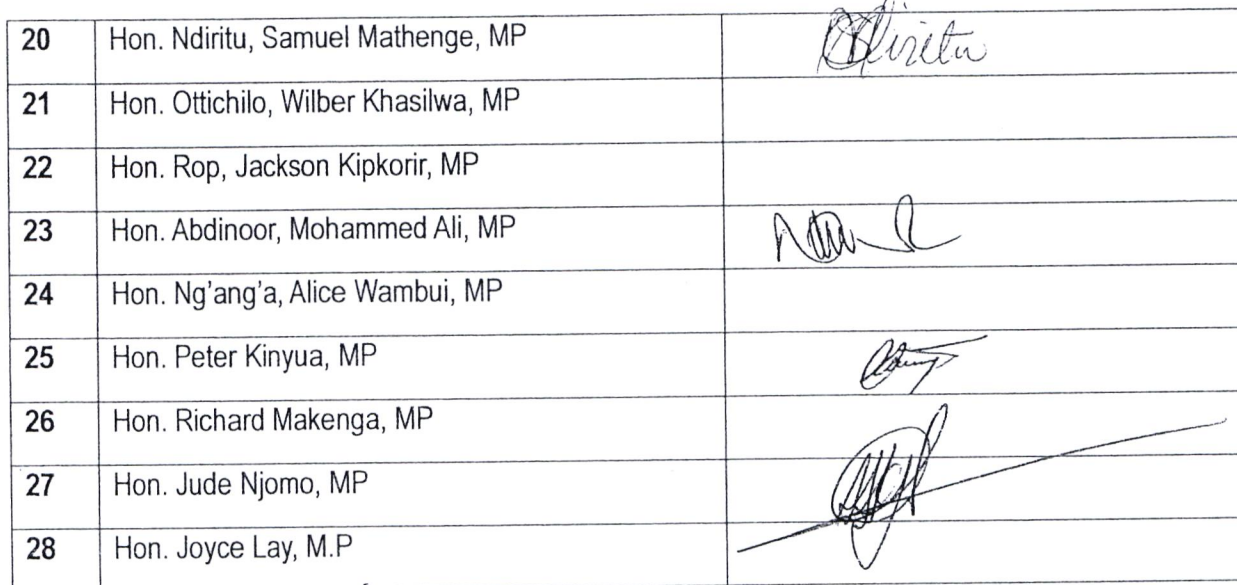 20 Hon. Ndiritu, Samuel Mathenge, MP
21 Hon. Ottichilo, Wilber Khasilwa, MP
22 Hon. Rop, Jackson Kipkorir, MP
23 Hon. Abdinoor, Mohammed Ali, MP
24 Hon. Ng'ang'a, Alice Wambui, MP
25 Hon. Peter Kinyua, MP
26 Hon. Richard Makenga, MP
27 Hon. Jude Njomo, MP
28 Hon. Joyce Lay, M.P